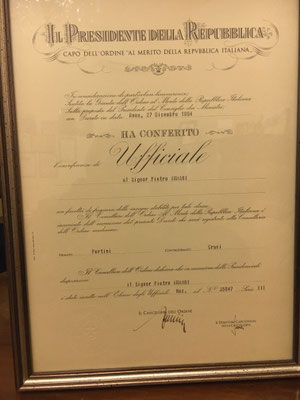 IL PRESIDENTE DELLA REPUBBLICA
CAPO DELL'ORDINE "AL MERITO DELLA REPVBBLICA ITALIANA"
In considerazione di particolari benemerenze;
Sentita la Giunta dell'Ordine al Merito della Repubblica Italiana
Sulla proposta del Presidente del Consiglio dei Ministri;
con Decreto in data: Roma, 27 Dicembre 1994
HA CONFERITO
l'onorificenza di
Ufficiale
al Signor Pietro
con facoltà di fregiarsi delle insegne stabilite per tale classe.
Il Cancelliere dell'Ordine Al Merito della Repubblica Italiana è
incaricato dell'esecuzione del presente Decreto che sarà registrato alla Cancelleria
dell'Ordine medesimo.
Il Cancelliere dell'Ordine dichiara che in esecuzione delle Presidenziali
disposizioni
il Signor Pietro
è stato iscritto nell'Elenco degli Ufficiali Naz. al N. Serie III
IL CANCELLIERE DELL'ORDINE